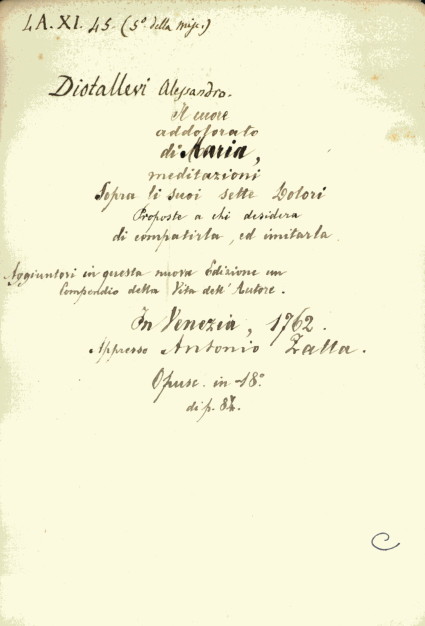 LA. XI. 45. (5º della misc.)
Diotallevi Alessandro.
Il cuore
addolorato
di Maria,
meditazioni
Sopra li suoi sette Dolori
Proposte a chi desidera
di compatirla, ed imitarla.
Aggiuntovi in questa nuova Edizione un
Compendio della Vita dell' Autore.
In Venezia, 1762.
Appresso Antonio Zatta.
Opusc. in -18º
di p.
C